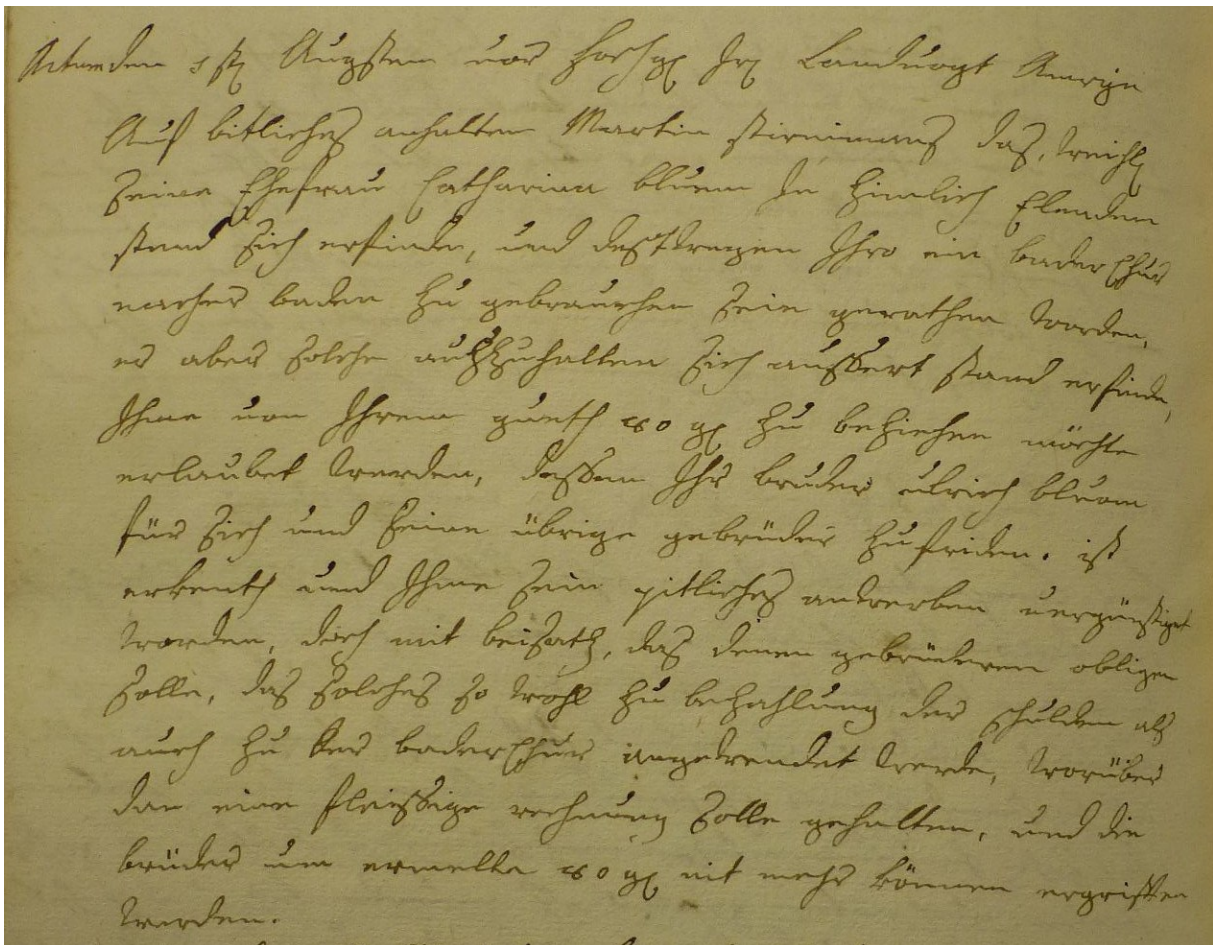 Actum den 1st Augsten vor hochg hr Landvogt Amrÿn
Auf bitliches anhalten Martin stirnimans das, weihl
seine Ehefrau Catharina bluem In Zimlich Elendem
stand sich erfinde, und destwegen Ihro ein bader Chur
nacher baden zu gebrauchen seie gerathen worden,
er aber solche auszuhalten sich aussert stand erfinde,
Ihme von Ihrem gueth 80 gl zu beziehen möchte
erlaubet werden, dessen Ihr bruder ulrich bluom
für sich und seine übrige gebrüder zufriden. ist
erkenth und Ihme sein pitliches anwerben vergünstiget
worden, doch mit beisatz, das denen gebrüderen obligen
solle, das solches so wohl zu bezahlung der schulden als
auch zu der bader Chur angewendet werde, worüber
dan eine fleissige rechnung solle gehalten, und die
brüder um ermelte 80 gl nit mehr können ergriffen
werden.